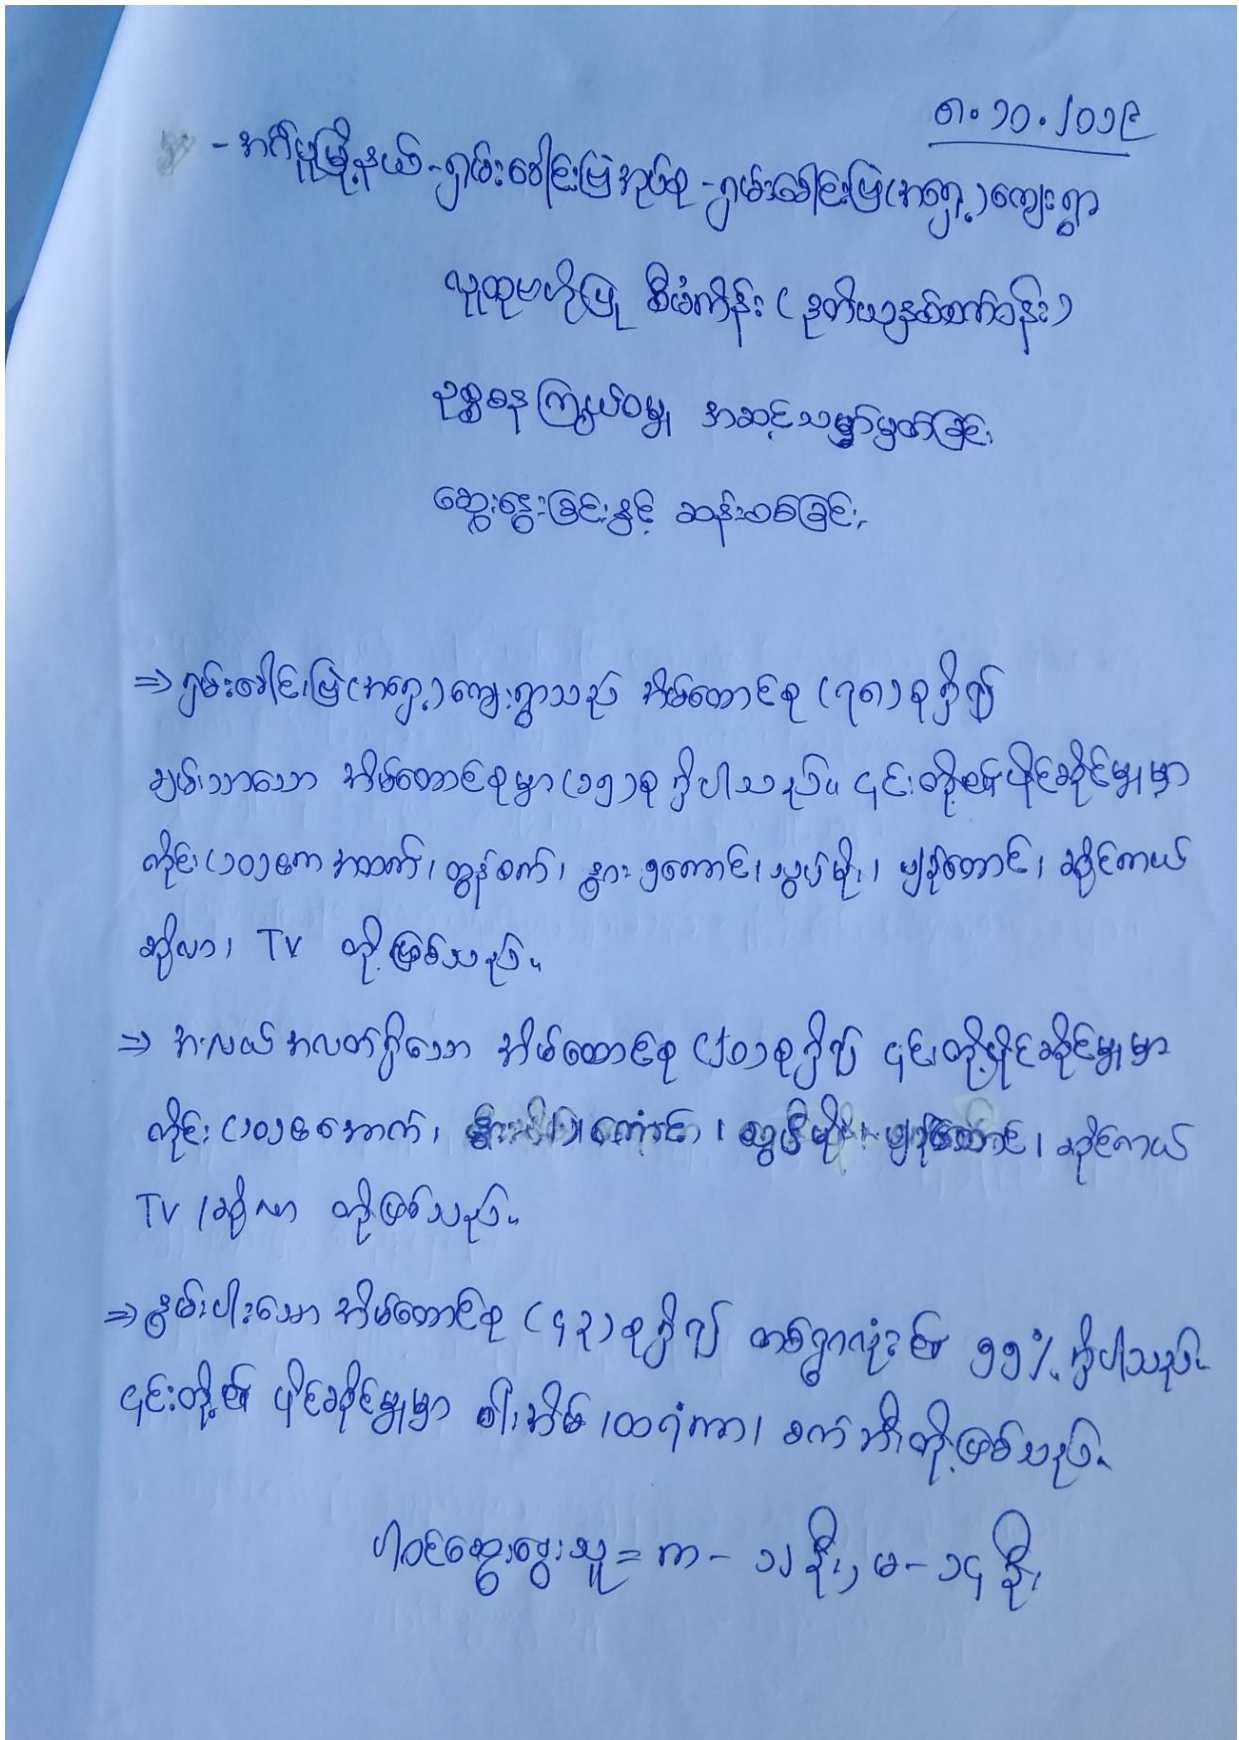 ၈.၁၀.၂၀၁၉
- အင်္ဂပူမြို့နယ် - ရှမ်းခေါင်းမြဲအုပ်စု - ရှမ်းခေါင်းမြဲ(အရှေ့)ကျေးရွာ
လူထုဗဟိုပြု စီမံကိန်း (ဒုတိယနှစ်စက်ဝန်း)
ဥစ္စာဓနကြွယ်ဝမှု အဆင့်သတ်မှတ်ခြင်း
ဆွေးနွေးခြင်းနှင့် ဆန်းစစ်ခြင်း
⇒ ရှမ်းခေါင်းမြဲ(အရှေ့)ကျေးရွာသည် အိမ်ထောင်စု (၇၈)စုရှိ၍
ချမ်းသာသော အိမ်ထောင်စုမှာ (၁၅)စု ရှိပါသည်။ ၎င်းတို့၏ပိုင်ဆိုင်မှုမှာ
ကိုင်း(၁၀)ဧက အထက်၊ ထွန်စက်၊ နွား ၅ကောင်၊ သွပ်မိုး၊ ပျဉ်ထောင်၊ ဆိုင်ကယ်
ဆိုလာ၊ TV တို့ဖြစ်သည်။
⇒ အလယ်အလတ်ရှိသော အိမ်ထောင်စု (၂၀)စုရှိ၍ ၎င်းတို့ပိုင်ဆိုင်မှုမှာ
ကိုင်း (၁၀)ဧအောက်၊ ကောင်၊ သွပ်မိုး၊ ပျဉ်ထောင်၊ ဆိုင်ကယ်
TV ၊ဆိုလာ တို့ဖြစ်သည်။
⇒ နွမ်းပါးသော အိမ်ထောင်စု (၄၃)စုရှိ၍ တစ်ရွာလုံး၏ ၅၅% ရှိပါသည်။
၎င်းတို့၏ ပိုင်ဆိုင်မှုမှာ ဝါးအိမ်၊ထရံကာ၊ စက်ဘီးတို့ဖြစ်သည်။
ပါဝင်ဆွေးနွေးသူ = ကျာ - ၁၂ ဦး, မ - ၁၄ ဦး